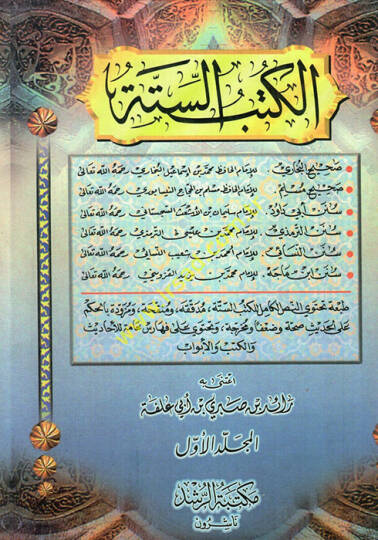 الكتب الستة
صحيح البخاري . للإمام الحافظ محمد بن إسماعيل البخاري رحمه الله تعالى
صحيح مسلم . للإمام الحافظ مسلم بن الحجاج النيسابوري رحمه الله تعالى
سنن أبي داود . للإمام سليمان بن الأشعث السجستاني رحمه الله تعالى
سنن الترمذي . للإمام محمد بن عيسى الترمذي رحمه الله تعالى
سنن النسائي . للإمام أحمد بن شعيب النسائي رحمه الله تعالى
سنن ابن ماجة . للإمام محمد بن يزيد القزويني رحمه الله تعالى
طبعة تحتوي النص الكامل للكتب الستة ، مدققة ، ومنقحة ، ومزودة بالحكم
على الحديث صحة وضعفا ومخرجة ، وتحتوي على فهارس عامة للأحاديث
والكتب والأبواب
اعتنى به
رائد بن صبري بن أبي علفة
المجلد الأول
مكتبة الرشد
ناشرون